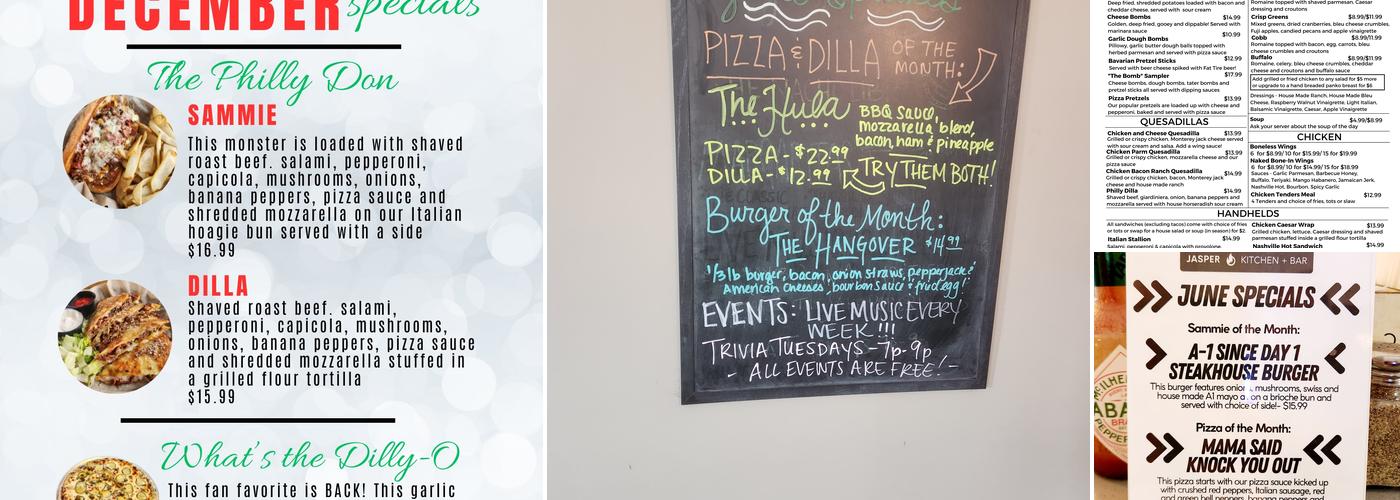 DECEMBER specials
The Philly Don
SAMMIE
This monster is loaded with shaved
roast beef. salami, pepperoni,
capicola, mushrooms, onions,
banana peppers, pizza sauce and
shredded mozzarella on our Italian
hoagie bun served with a side
$16.99
DILLA
Shaved roast beef. salami,
pepperoni, capicola, mushrooms,
onions, banana peppers, pizza sauce
and shredded mozzarella stuffed in
a grilled flour tortilla
$15.99
What's the Dilly-O
This fan favorite is BACK! This garlic
PIZZA & DILLA OF THE
MONTH:
The Hula
BBQ Sauce,
mozzarella blend,
bacon, ham & pineapple
PIZZA - $22.99
DILLA - $12.99
TRY THEM BOTH!
Burger of the Month:
THE HANGOVER $14.99
1/3 lb burger, bacon, onion straws, pepperjack &
American cheeses, bourbon sauce & fried egg!
EVENTS: LIVE MUSIC EVERY
WEEK!!!
TRIVIA TUESDAYS - 7p-9p
- ALL EVENTS ARE FREE! -
Deep fried, shredded potatoes loaded with bacon and
cheddar cheese, served with sour cream
Cheese Bombs $14.99
Golden, deep fried, gooey and dippable! Served with
marinara sauce
Garlic Dough Bombs $10.99
Pillowy, garlic butter dough balls topped with
herbed parmesan and served with pizza sauce
Bavarian Pretzel Sticks $12.99
Served with beer cheese spiked with Fat Tire beer!
"The Bomb" Sampler $17.99
Cheese bombs, dough bombs, tater bombs and
pretzel sticks all served with dipping sauces
Pizza Pretzels $13.99
Our popular pretzels are loaded up with cheese and
pepperoni, baked and served with pizza sauce
QUESADILLAS
Chicken and Cheese Quesadilla $13.99
Grilled or crispy chicken, Monterey jack cheese served
with sour cream and salsa. Add a wing sauce!
Chicken Parm Quesadilla $13.99
Grilled or crispy chicken, mozzarella cheese and our
pizza sauce
Chicken Bacon Ranch Quesadilla $14.99
Grilled or crispy chicken, bacon, Monterey jack
cheese and house made ranch
Philly Dilla $14.99
Shaved beef, giardiniera, onion, banana peppers and
mozzarella served with house horseradish sour cream
Romaine topped with shaved parmesan. Caesar
dressing and croutons
Crisp Greens $8.99/11.99
Mixed greens, dried cranberries, bleu cheese crumbles,
Fuji apples, candied pecans and apple vinaigrette
Cobb $8.99/11.99
Romaine topped with bacon, egg, carrots, bleu
cheese crumbles and croutons
Buffalo $8.99/$11.99
Romaine, celery, bleu cheese crumbles, cheddar
cheese and croutons and buffalo sauce
Add grilled or fried chicken to any salad for $5 more
or upgrade to a hand breaded panko breast for $6
Dressings - House Made Ranch, House Made Bleu
Cheese, Raspberry Walnut Vinaigrette, Light Italian,
Balsamic Vinaigrette, Caesar, Apple Vinaigrette
Soup $4.99/$8.99
Ask your server about the soup of the day
CHICKEN
Boneless Wings
6 for $8.99/ 10 for $15.99/ 15 for $19.99
Naked Bone-In Wings
6 for $8.99/ 10 for $14.99/ 15 for $18.99
Sauces - Garlic Parmesan, Barbecue Honey,
Buffalo, Teriyaki, Mango Habanero, Jamaican Jerk,
Nashville Hot, Bourbon, Spicy Garlic
Chicken Tenders Meal $12.99
4 Tenders and choice of fries, tots or slaw
HANDHELDS
All sandwiches (excluding tacos) come with choice of fries
or tots or swap for a house salad or soup (in season) for $2.
Italian Stallion $14.99
Salami, pepperoni & capicola with provolone,
Chicken Caesar Wrap $13.99
Grilled chicken, lettuce, Caesar dressing and shaved
parmesan stuffed inside a grilled flour tortilla
Nashville Hot Sandwich $14.99
JASPER KITCHEN + BAR
JUNE SPECIALS
Sammie of the Month:
A-1 SINCE DAY 1
STEAKHOUSE BURGER
This burger features onion, mushrooms, swiss and
house made A1 mayo on a brioche bun and
served with choice of side!- $15.99
Pizza of the Month:
MAMA SAID
KNOCK YOU OUT
This pizza starts with our pizza sauce kicked up
with crushed red peppers, Italian sausage, red
and green bell peppers, banana peppers and